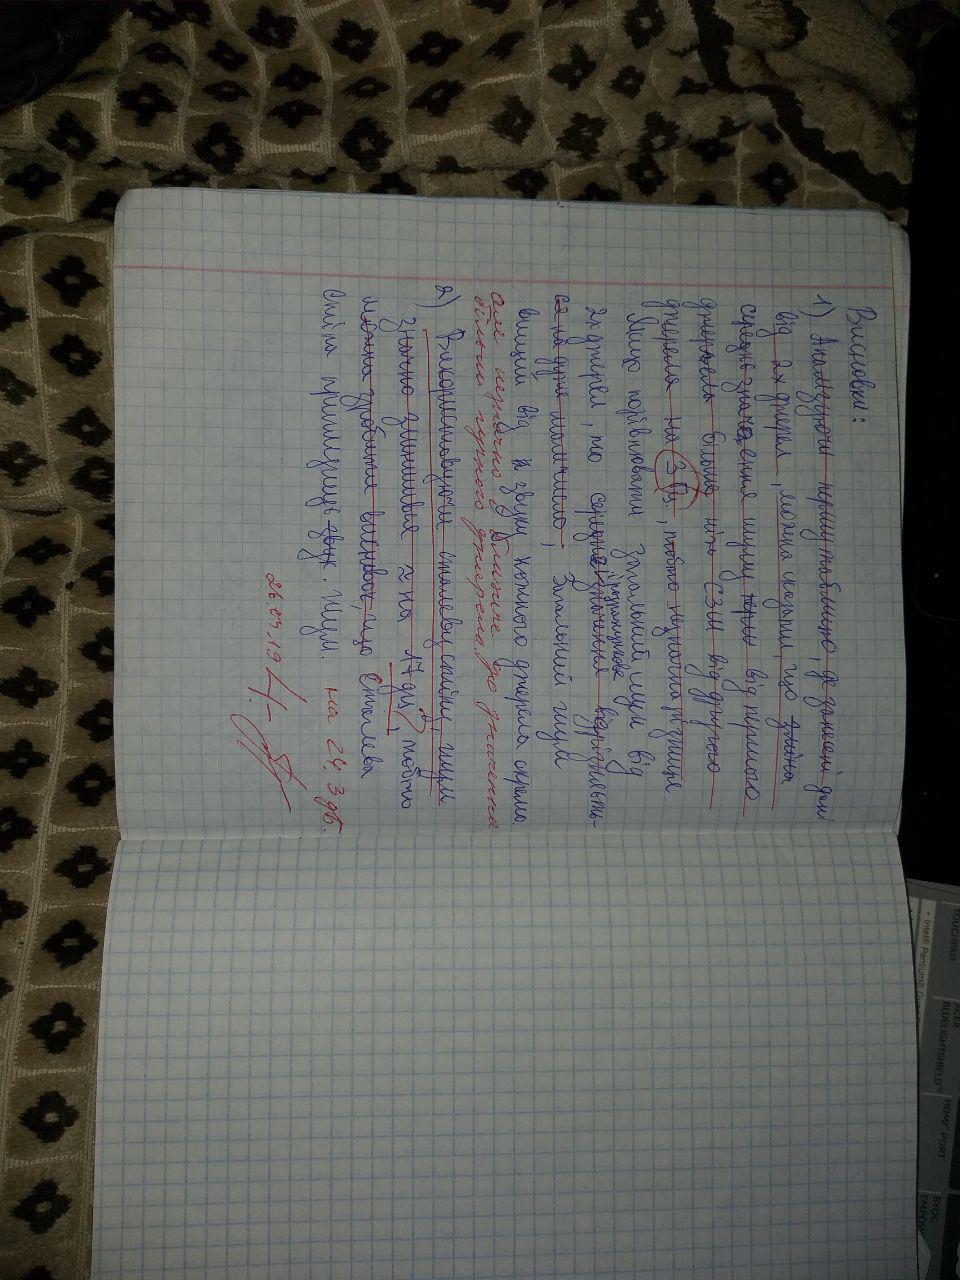 TOUCHPAD
ACER
BLUELIGHTSHIELD™
HDMI™ PORT
BYOC
EMPOW
• Intel® Pentium® Quad
Висновки:
1) Аналізуючи першу таблицю, де занесені дані
від 2х джерел, можна сказати, що зміна
середнє значення шуму від першого
джерела більше ніж СЗШ від другого
джерела на 3 Гц., тобто незначна різниця
Якщо порівнювати загальний шум від
і розрахункове
2х джерел, то середнє значення відрізняєть-
ся на дуже мале число; Загальний шум
вищий від звуку кожного джерела окремо
але незначно є ближче до значення
більш гучного джерела.
2) Використовуючи сталеву стіну, шум
значно зменшився ≈ на 17 дц?, тобто
можна зробити висновок, що Сталева
стіна приглушує звук. Шум. на 24.3 дБ.
26.04.19 4-